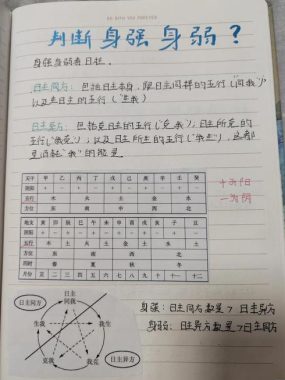 BE WITH YOU FOREVER
判断身强身弱?
身强身弱看日柱。
日主同方: 包括日主本身, 跟日主同样的五行("同我")
以及生日主的五行("生我")
日主异方: 包括克日主的五行("克我"), 日主所克的
五行("我克"), 以及日主所生的五行("我生"), 这都
是消耗"我"的能量.
天干 甲 乙 丙 丁 戊 己 庚 辛 壬 癸
阴阳 + - + - + - + - + -
五行 木 火 土 金 水
方位 东 南 中 西 北
+为阳
-为阴
地支 寅 卯 辰 巳 午 未 申 酉 戌 亥 子 丑
阴阳 + - + - + - + - + - + -
五行 木 土 火 土 金 土 水 土
方位 东 南 西 北
四时 春 夏 秋 冬
月份 正 二 三 四 五 六 七 八 九 十 十一 十二
日主同方
日主
同我
生我 我生
克我 我克
日主异方
身强: 日主同方数量 > 日主异方
身弱: 日主异方数量 > 日主同方